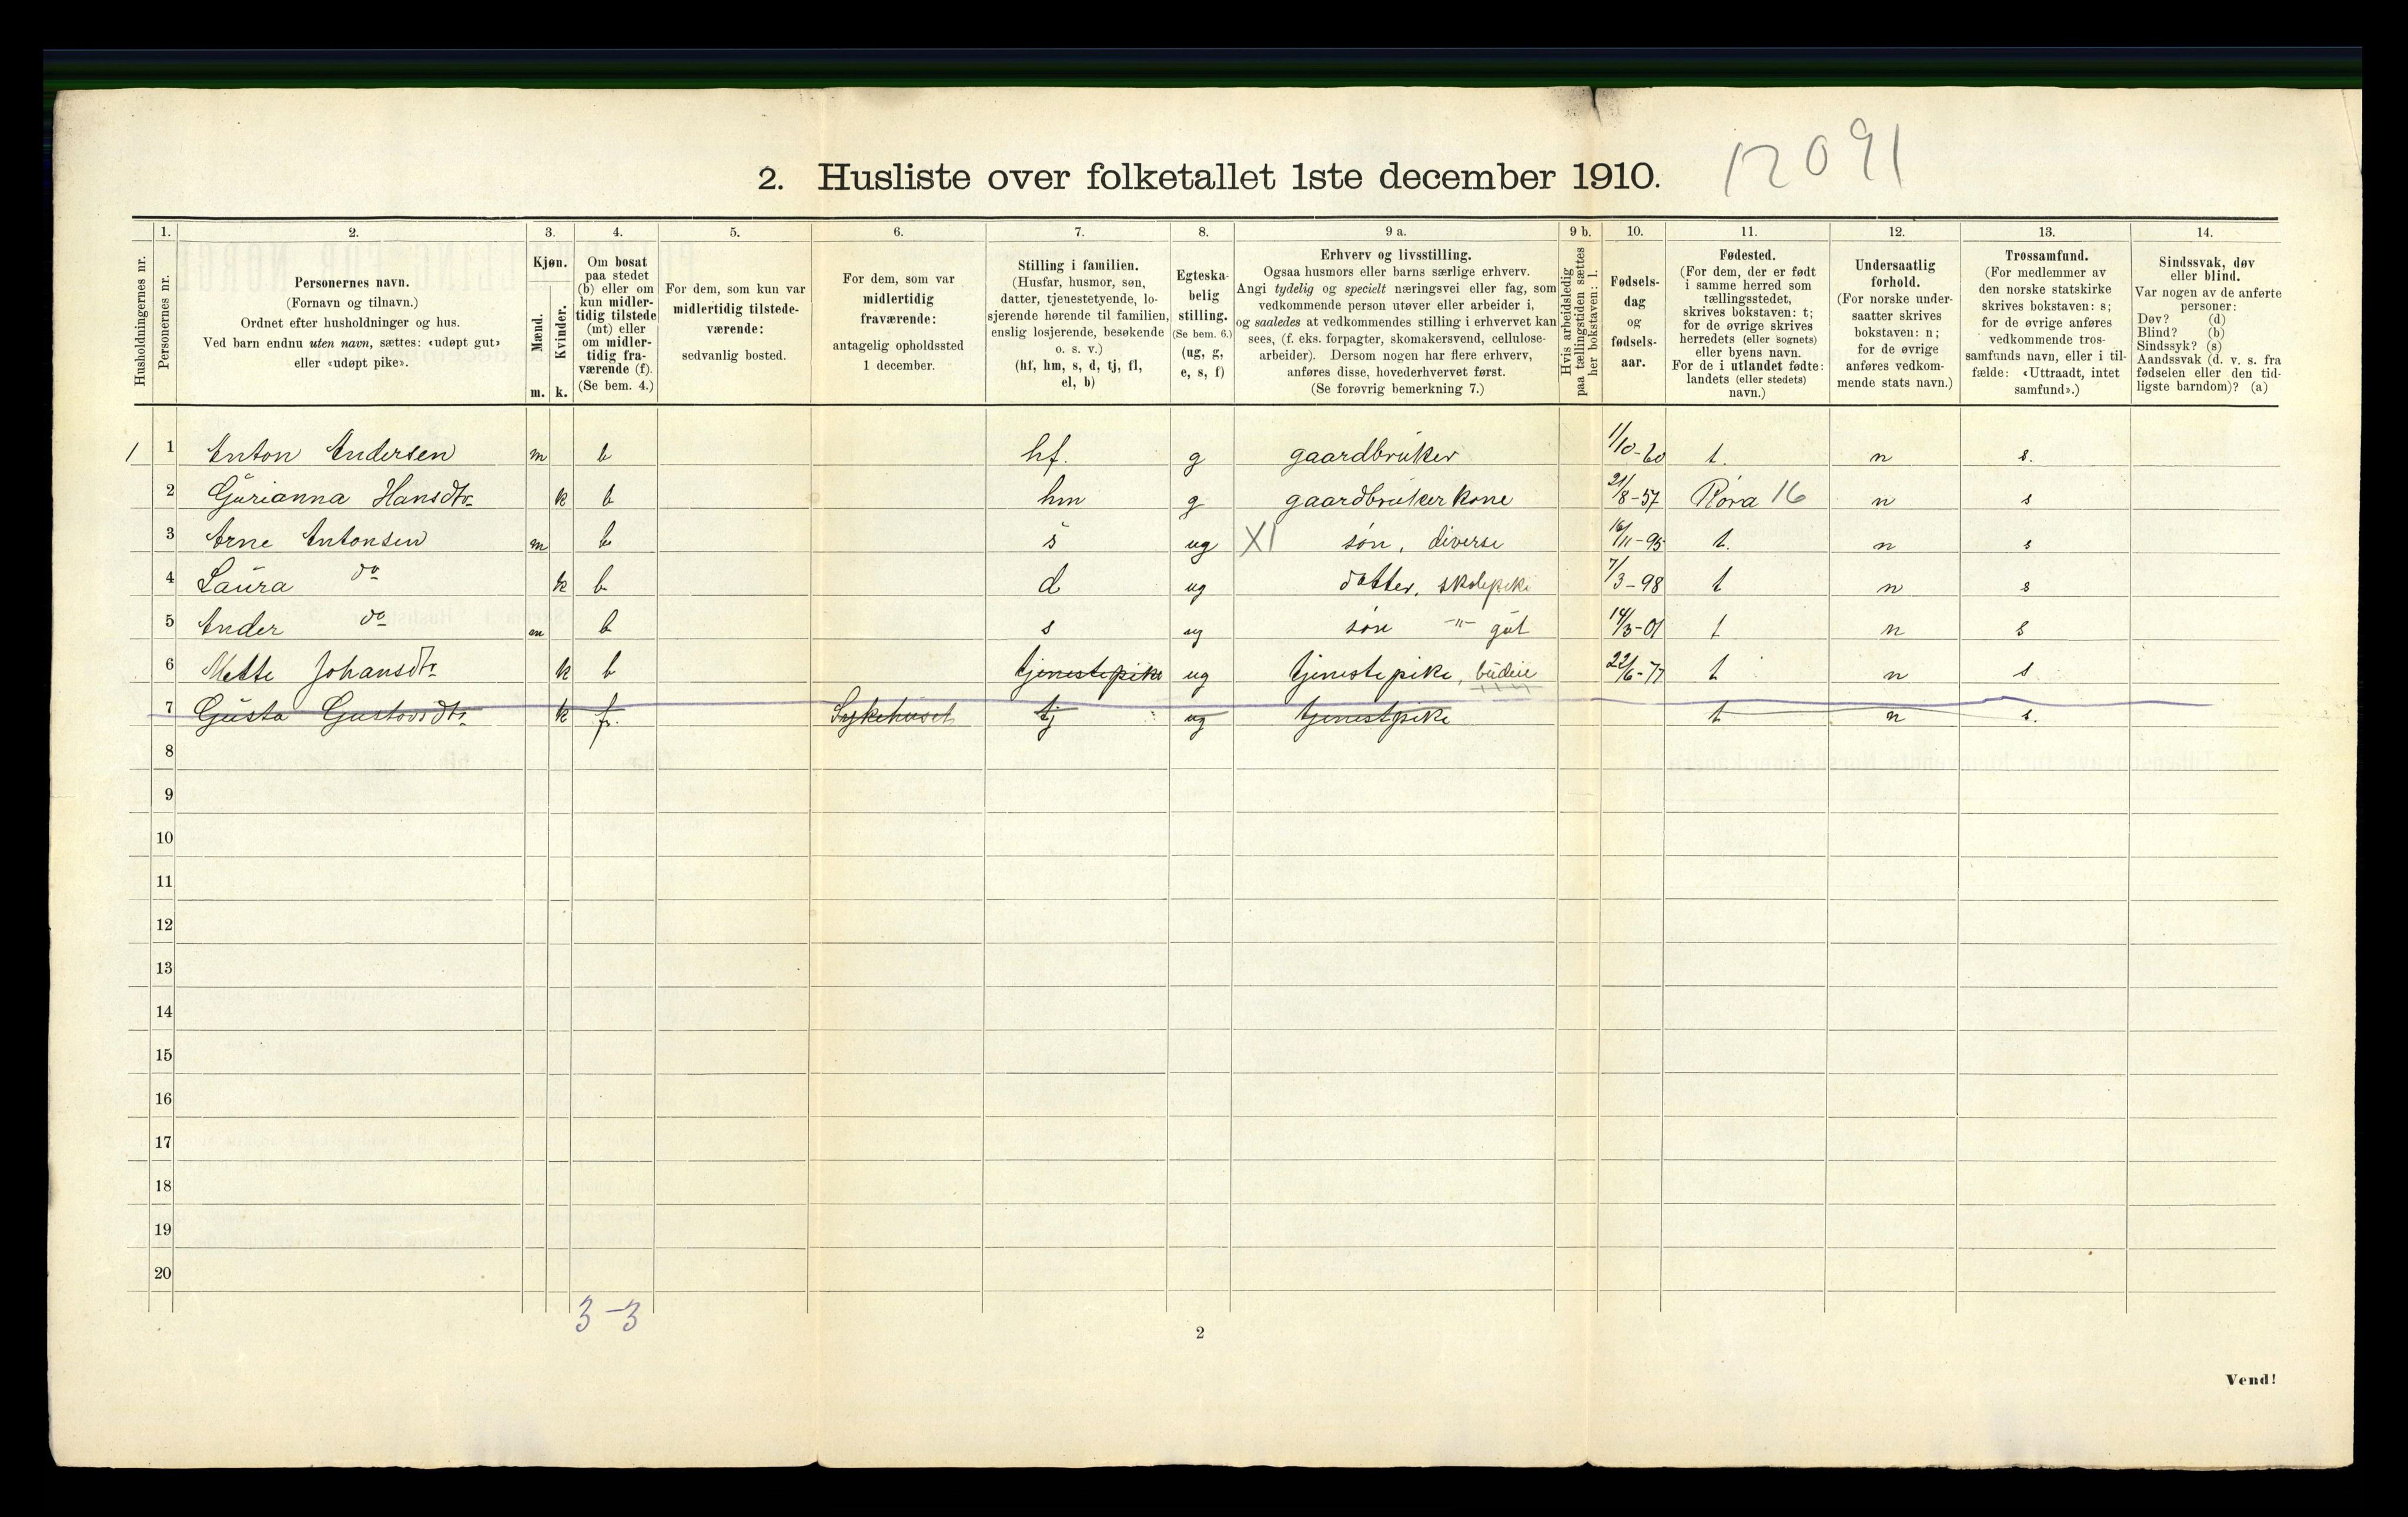 12091
2. Husliste over folketallet 1ste december 1910.
Husholdningernes nr.
1.
Personernes nr.
2.
Personernes navn.
(Fornavn og tilnavn.)
Ordnet efter husholdninger og hus.
Ved barn endnu uten navn, sættes: «udøpt gut»
eller «udøpt pike».
3.
Kjøn.
Mænd.
Kvinder.
m. k.
4.
Om bosat
paa stedet
(b) eller om
kun midler-
tidig tilstede
(mt) eller
om midler-
tidig fra-
værende (f).
(Se bem. 4.)
5.
For dem, som kun var
midlertidig tilstede-
værende:
sedvanlig bosted.
6.
For dem, som var
midlertidig
fraværende:
antagelig opholdssted
1 december.
7.
Stilling i familien.
(Husfar, husmor, søn,
datter, tjenestetyende, lo-
sjerende hørende til familien,
enslig losjerende, besøkende
o. s. v.)
(hf, hm, s, d, tj, fl,
el, b)
8.
Egteska-
belig
stilling.
(Se bem. 6.)
(ug, g,
e, s, f)
9 a.
Erhverv og livsstilling.
Ogsaa husmors eller barns særlige erhverv.
Angi tydelig og specielt næringsvei eller fag, som
vedkommende person utøver eller arbeider i,
og saaledes at vedkommendes stilling i erhvervet kan
sees, (f. eks. forpagter, skomakersvend, cellulose-
arbeider). Dersom nogen har flere erhverv,
anføres disse, hovederhvervet først.
(Se forøvrig bemerkning 7.)
9 b.
Hvis arbeidsledig
paa tællingstiden sættes
her bokstaven: l.
10.
Fødsels-
dag
og
fødsels-
aar.
11.
Fødested.
(For dem, der er født
i samme herred som
tællingsstedet,
skrives bokstaven: t;
for de øvrige skrives
herredets (eller sognets)
eller byens navn.
For de i utlandet fødte:
landets (eller stedets)
navn.)
12.
Undersaatlig
forhold.
(For norske under-
saatter skrives
bokstaven: n;
for de øvrige
anføres vedkom-
mende stats navn.)
13.
Trossamfund.
(For medlemmer av
den norske statskirke
skrives bokstaven: s;
for de øvrige anføres
vedkommende tros-
samfunds navn, eller i til-
fælde: «Uttraadt, intet
samfund».)
14.
Sindssvak, døv
eller blind.
Var nogen av de anførte
personer:
Døv? (d)
Blind? (b)
Sindssyk? (s)
Aandssvak (d. v. s. fra
fødselen eller den tid-
ligste barndom)? (a)
1 1 Anton Andersen m b hf. g gaardbruker 1/10-60 t. n s.
2 Gurianna Hansdtr k b hm g gaardbrukerkone 21/8-57 Røra 16 n s
3 Arne Antonsen m b s ug XI søn, diverse 16/11-95 t. n s
4 Laura do k b d ug datter, skolepike 7/3-98 t n s
5 Ander do m b s ug søn -"- gut 14/3-01 t n s
6 Mette Johansdtr k b tjenestepike ug tjenestepike, budeie 22/6-77 t n s
7 Gusta Gustavsdtr k f. Sykehuset tj ug tjenestpike t n s.
8
9
10
11
12
13
14
15
16
17
18
19
20
3-3
2
Vend!